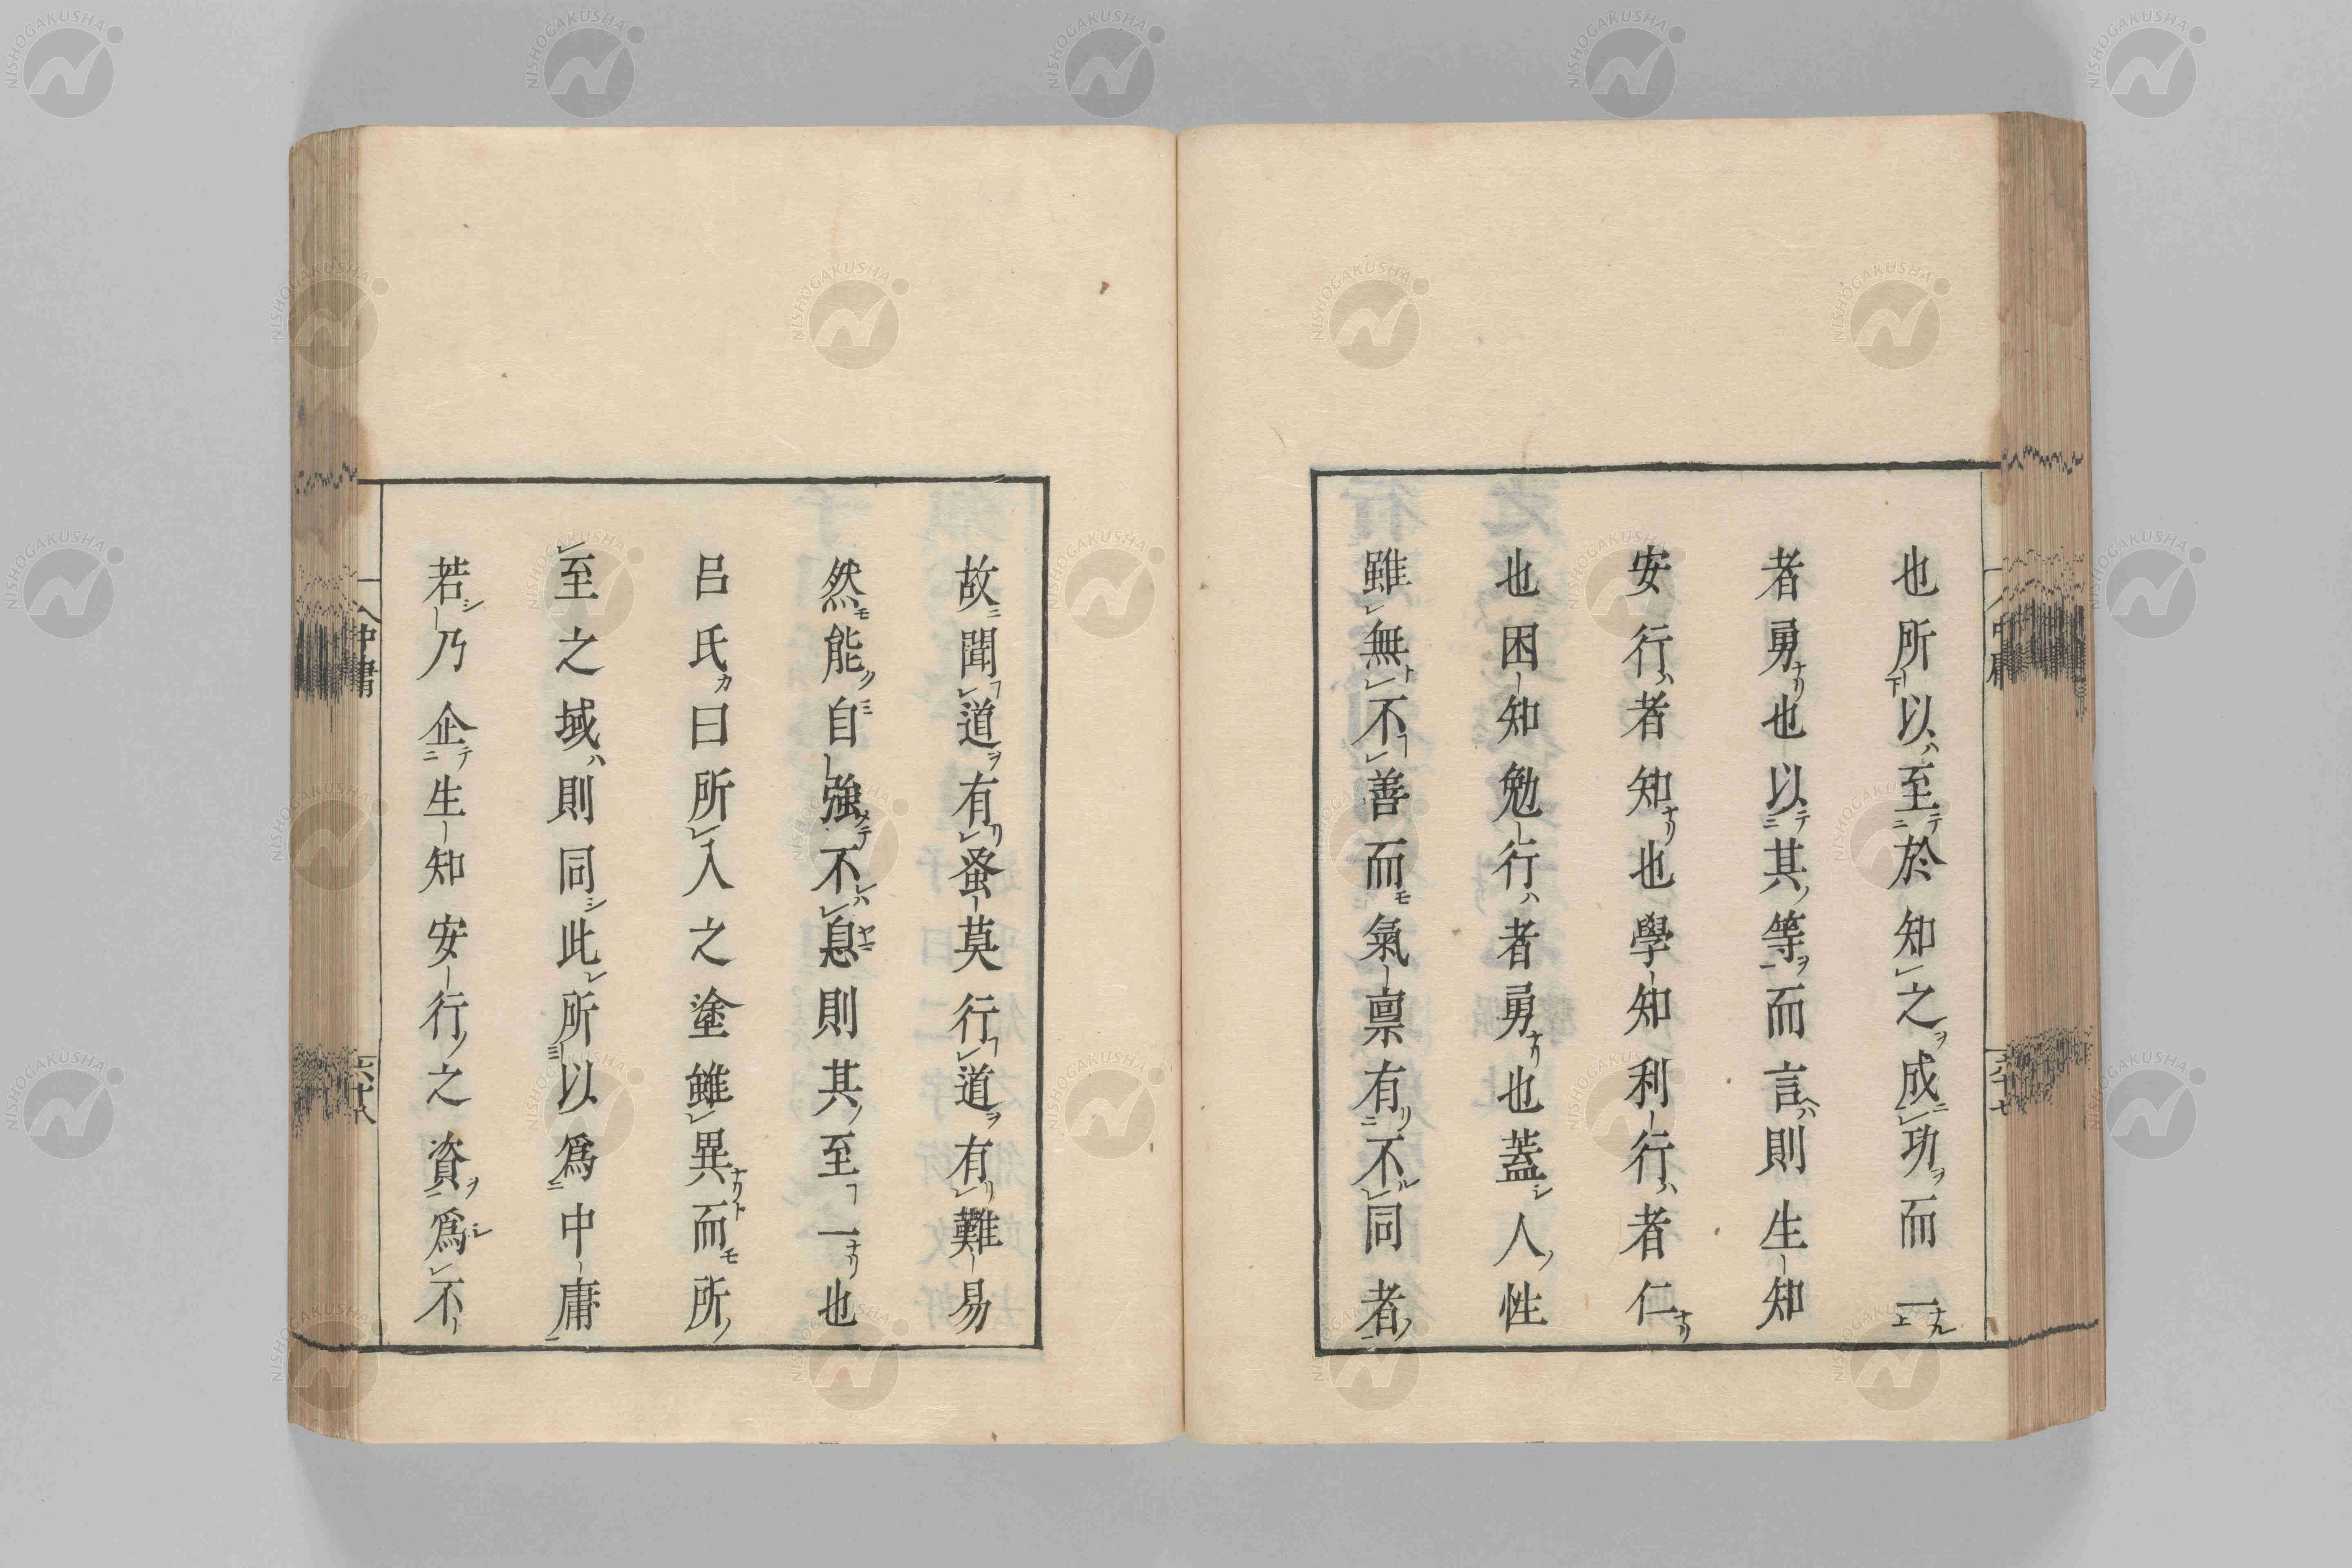 也所以至於知之成功而一
者勇也以其等而言則生知
安行者知也學知利行者仁
也困知勉行者勇也蓋人性
雖無不善而氣禀有不同者
故聞道有蚤莫行道有難易
然能自強不息則其至一也
呂氏曰所入之塗雖異而所
至之域則同此所以爲中庸
若乃企生知安行之資爲不
中庸
六十八
NISHOGAKUSHA